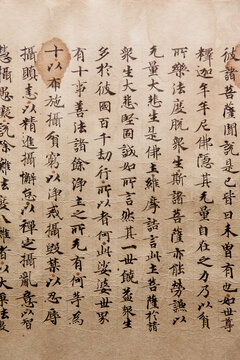 彼諸菩薩聞說是已皆曰未曾有也如世尊
釋迦牟尼佛隱其无量自在之力乃以貧
所樂法度脫衆生斯諸菩薩亦能勞謙以
无量大悲生是佛土維摩詰言此土菩薩於諸
衆生大悲堅固誠如所言然其一世饒益衆生
多於彼國百千劫行所以者何此娑婆世界
有十事善法諸餘淨土之所无有何等為
十以布施攝貧窮以淨戒攝毀禁以忍辱
攝瞋恚以精進攝懈怠以禪定攝亂意以智
慧攝愚癡說除難法度八難者以大乘法